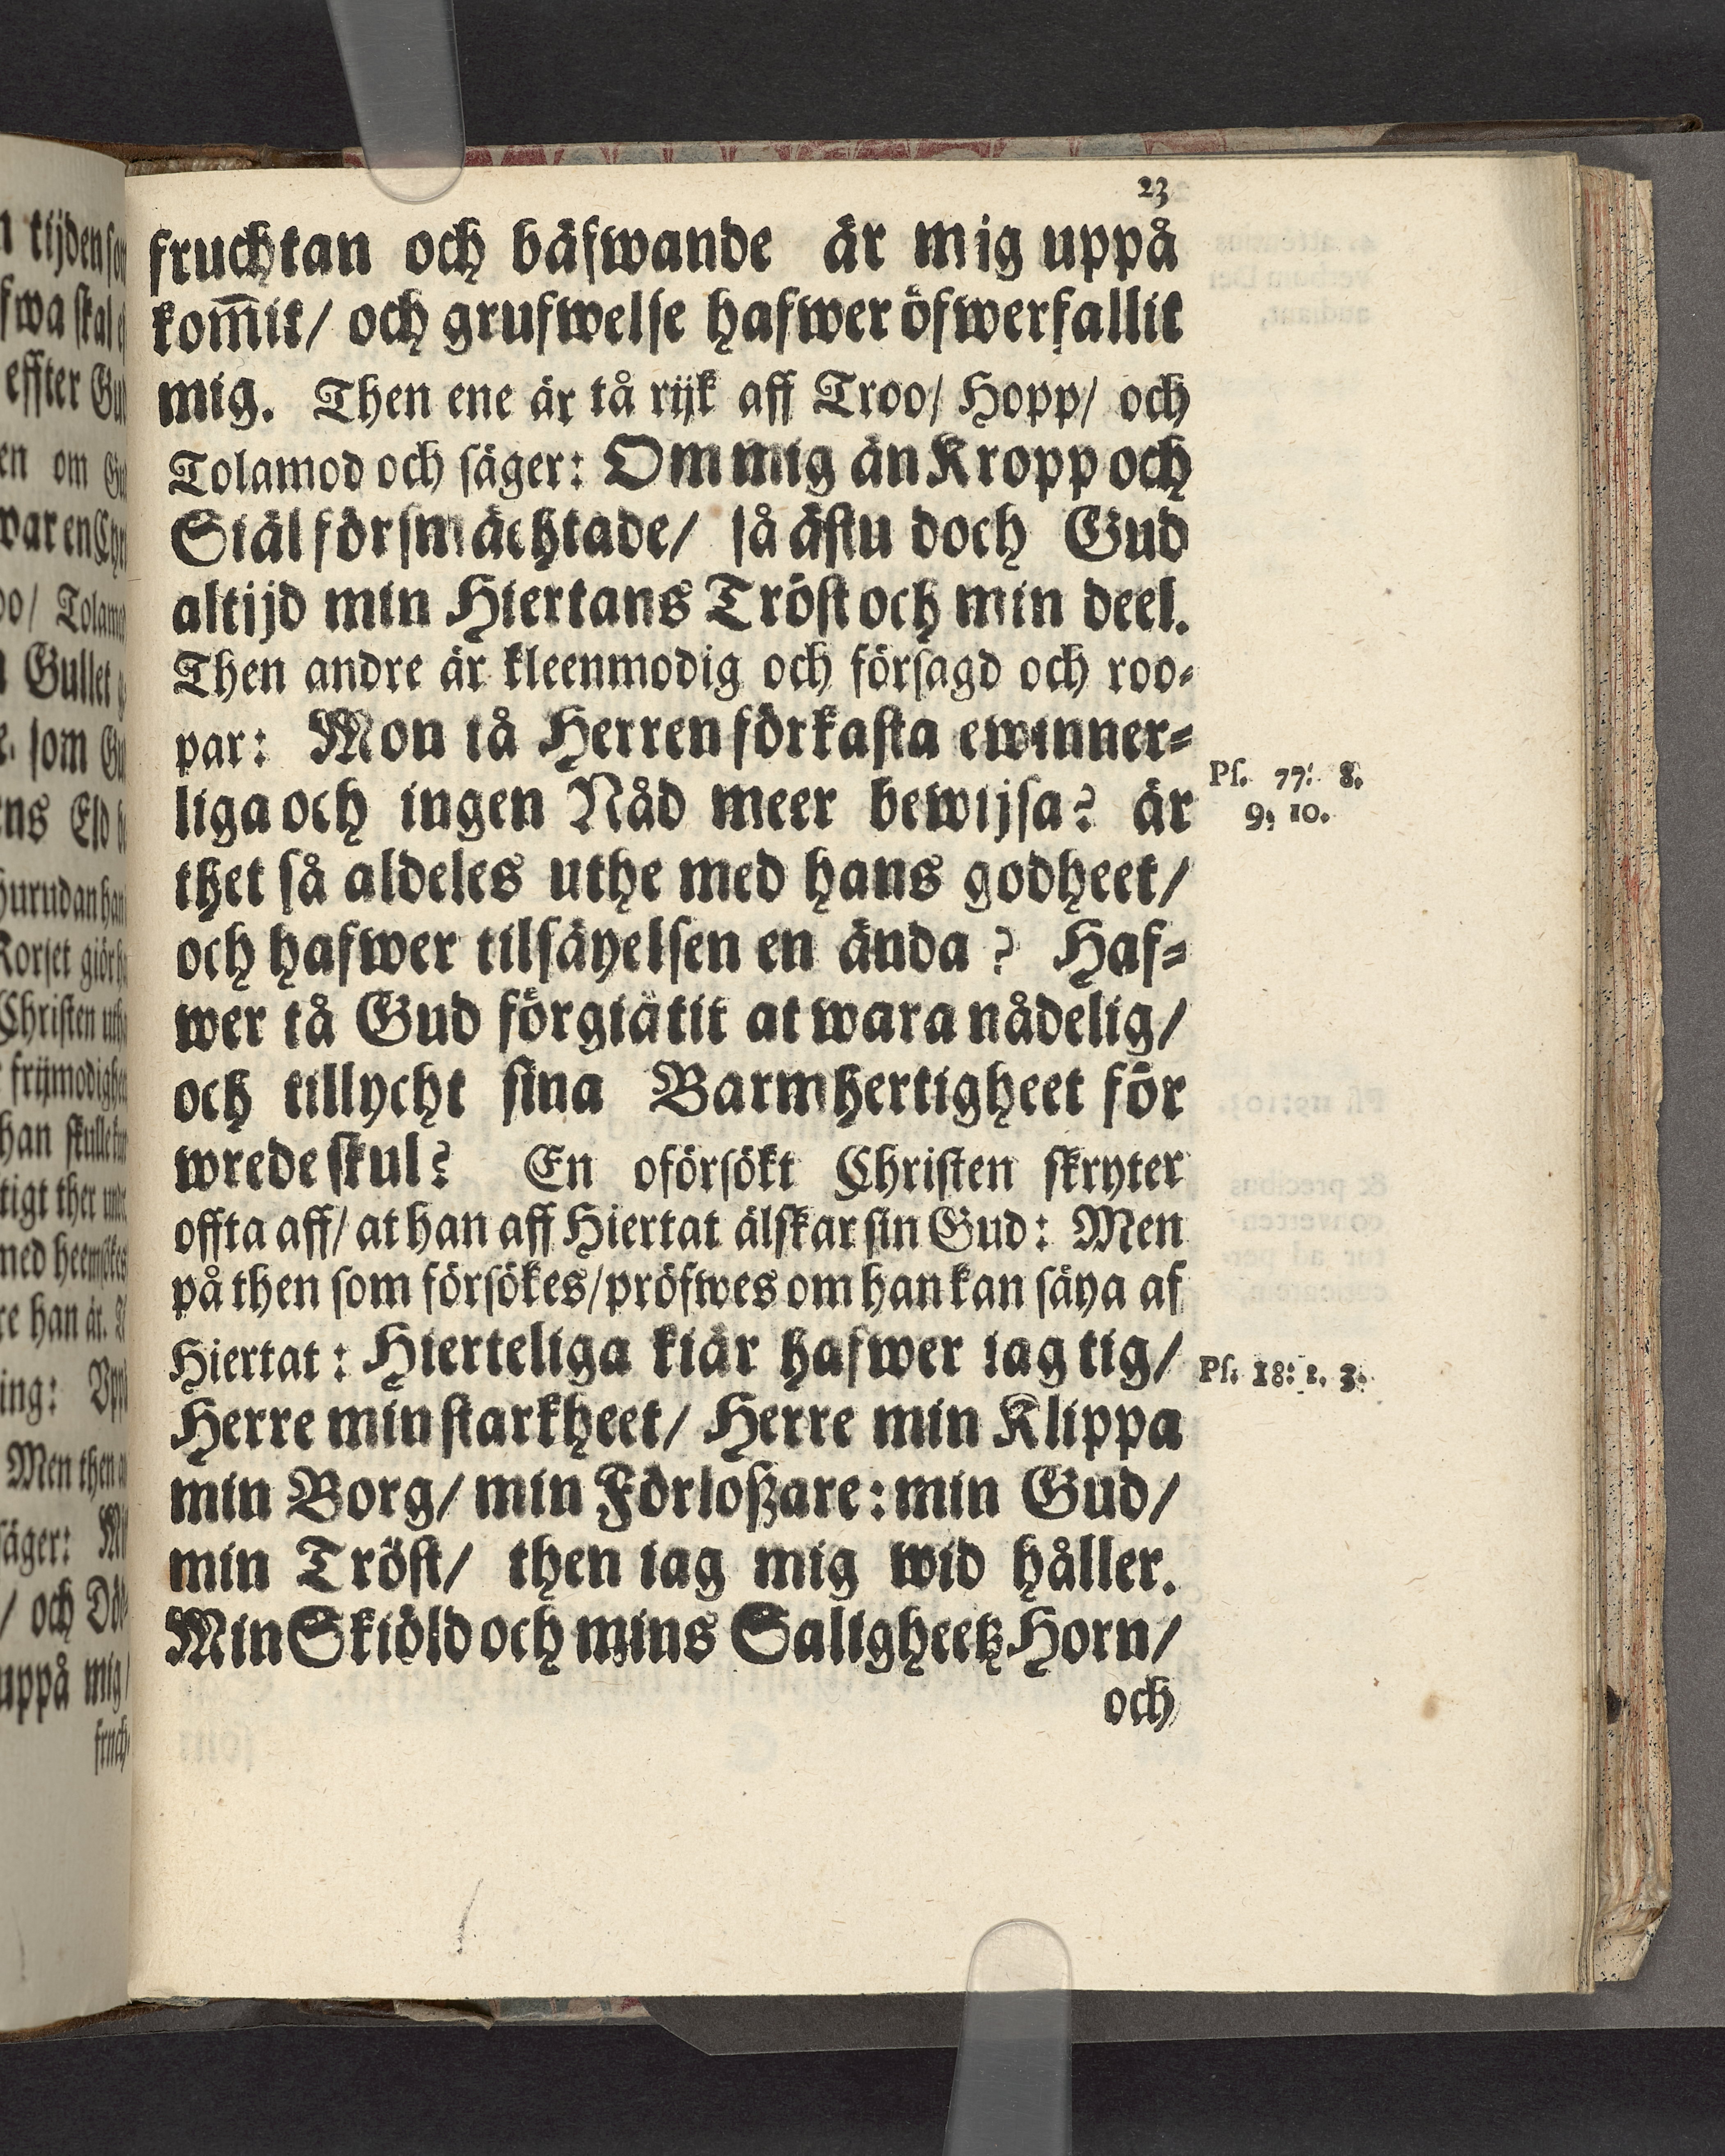 23
fruchtan och bäfwande är mig uppå
kom̅it/ och grufwelse hafwer öfwerfallit
mig. Then ene är tå rijk aff Troo/ Hopp/ och
Tolamod och säger: Om mig än Kropp och
Siäl försmächtade/ så ästu doch Gud
altijd min Hiertans Tröst och min deel.
Then andre är kleenmodig och försagd och roo-
par: Mon tå Herren förkasta ewinner-
liga och ingen Nåd meer bewijsa? är
Ps. 77: 8.
9, 10.
thet så aldeles uthe med hans godheet/
och hafwer tilsäyelsen en ända? Haf-
wer tå Gud förgiätit at wara nådelig/
och tillycht sina Barmhertigheet för
wrede skul? En oförsökt Christen skryter
offta aff/ at han aff Hiertat älskar sin Gud: Men
på then som försökes/ pröfwes om han kan säya af
Hiertat: Hierteliga kiär hafwer iag tig/
Ps. 18: 2. 3.
Herre min starkheet/ Herre min Klippa
min Borg/ min Förloßare: min Gud/
min Tröst/ then iag mig wid håller.
Min Skiöld och mins Saligheetz Horn/
och